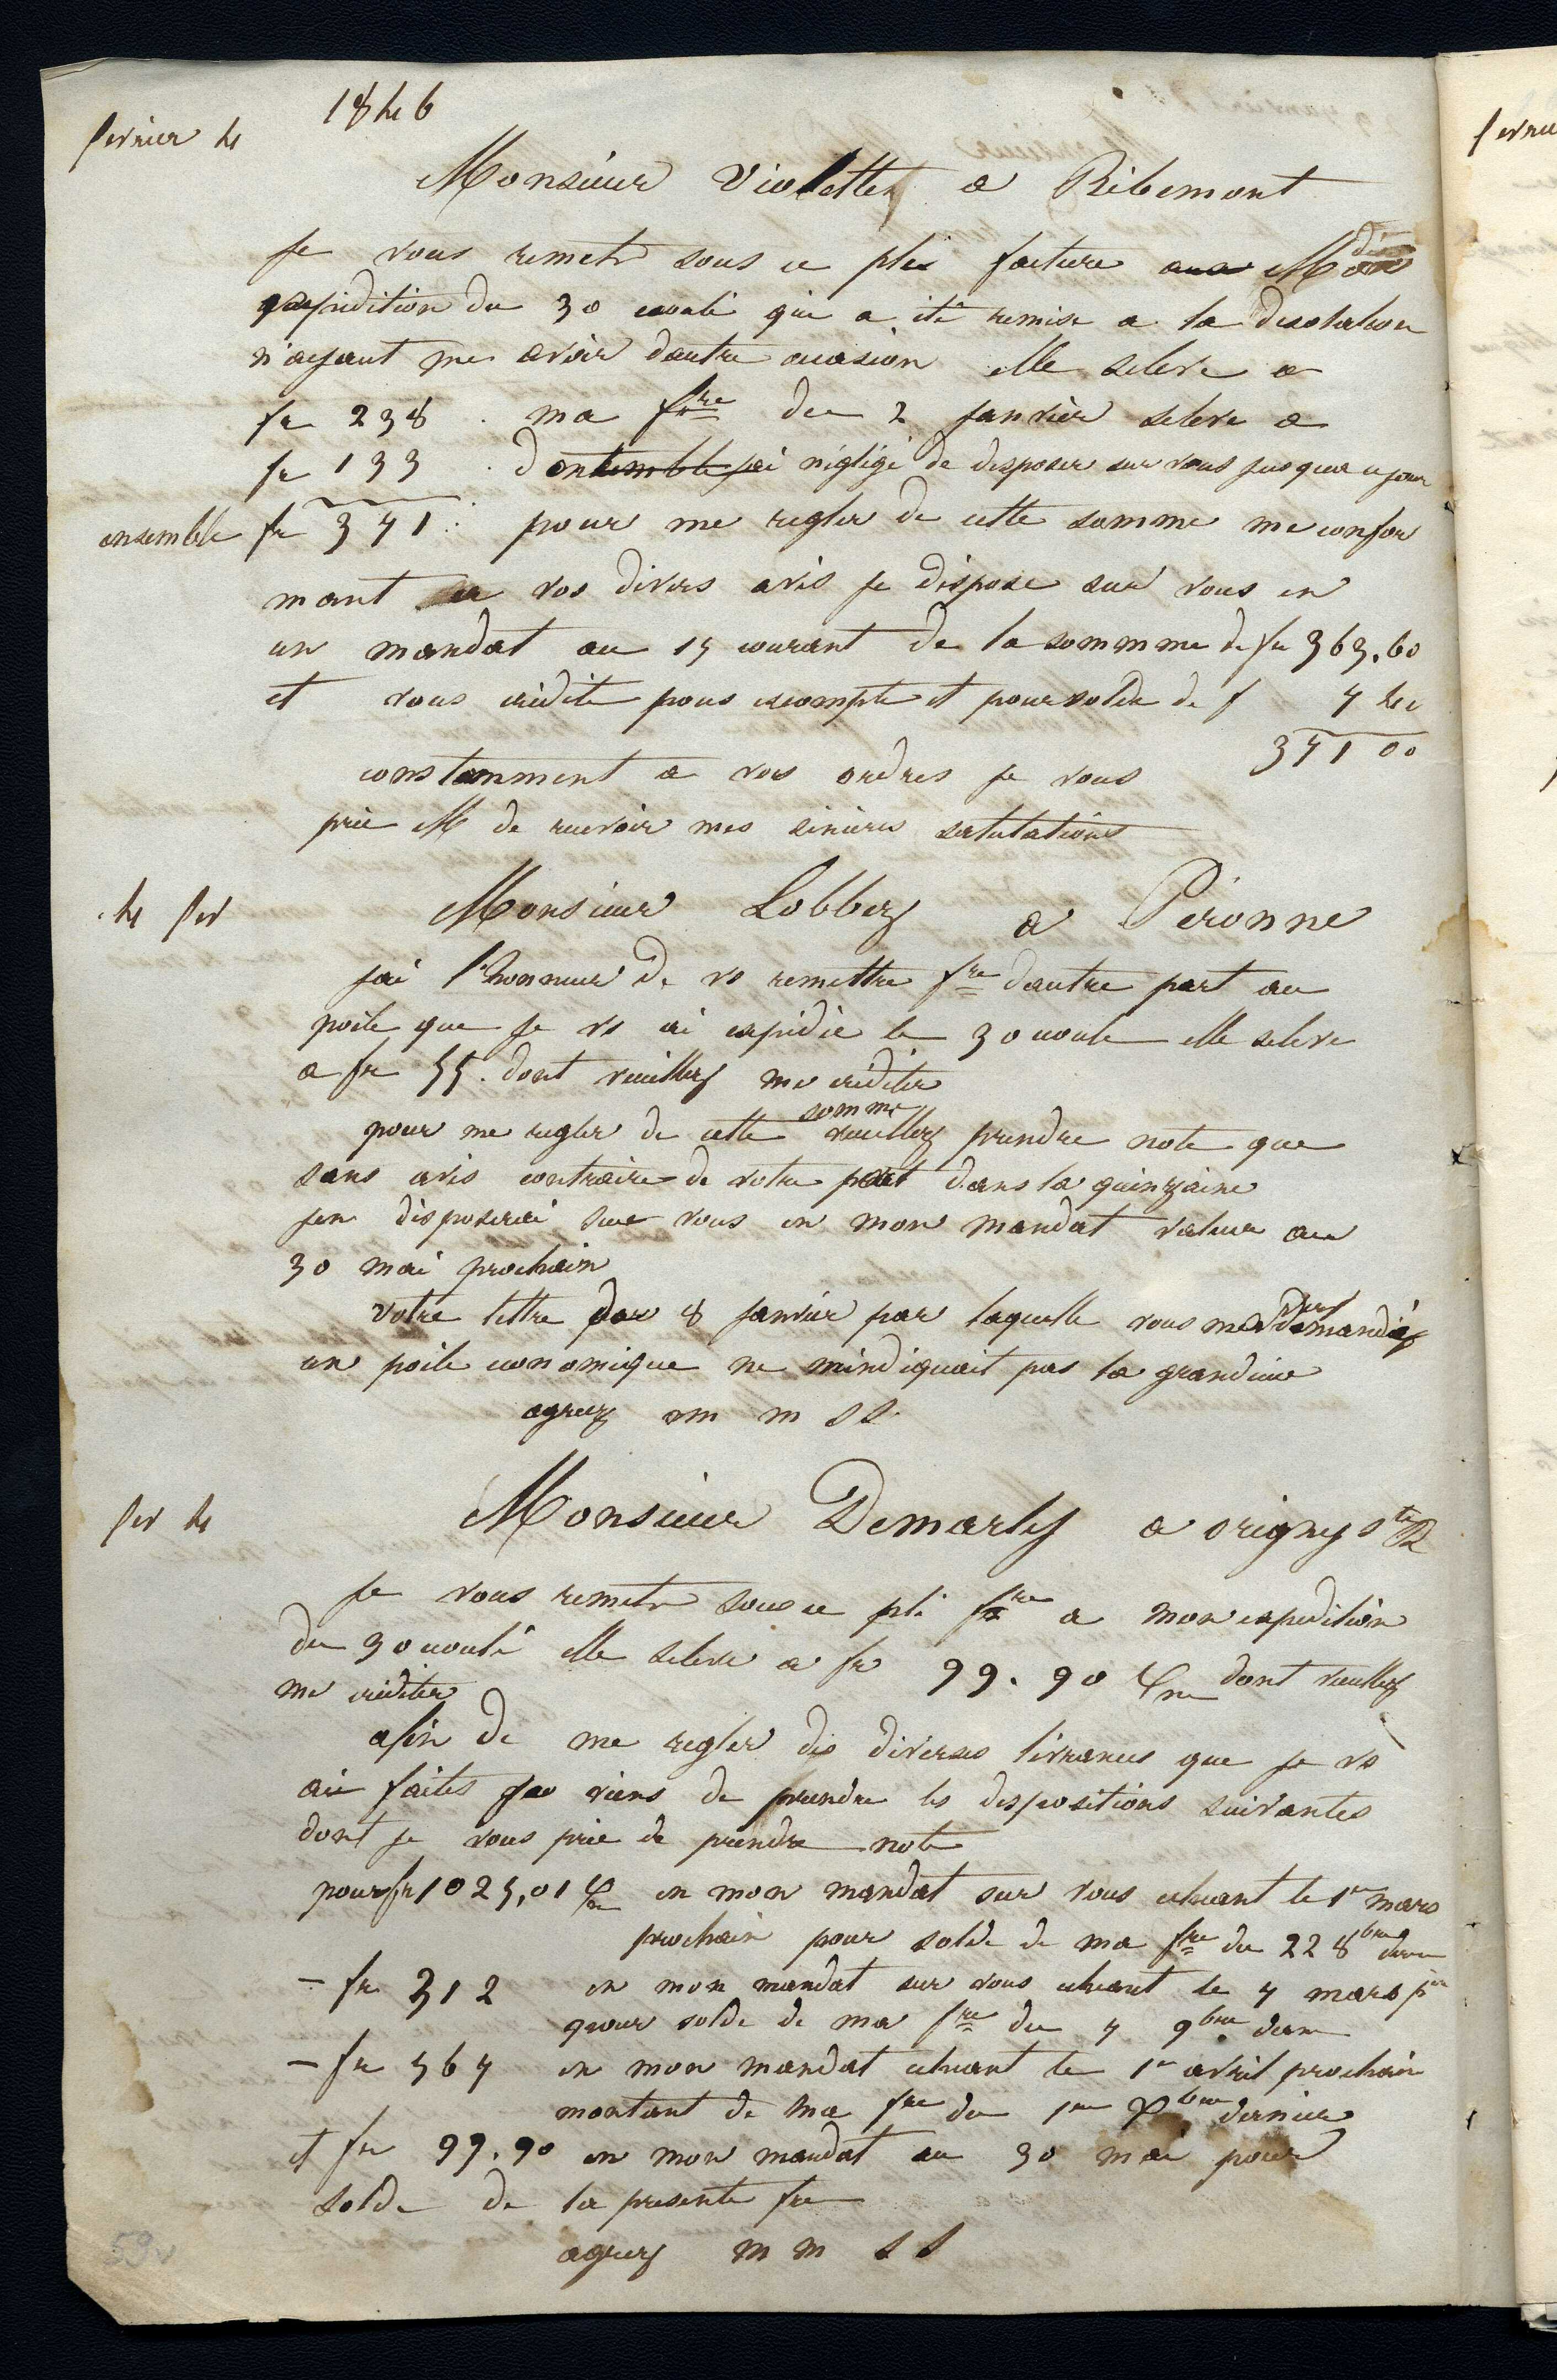 1846
fevrier 4
Monsieur Violette a Ribemont
Je vous remets sous ce pli facture
expédition du 30 ecoulé qui a été remise a la desolation
n'ayant pu avoir dautre occasion elle seleve a
fr 238 . ma fre du 2 janvier seleve a
fr 133 . dont jai négligé de disposer sur vous jusqua ce jour
ensemble fr 371 : pour me regler de cette somme me confor
mant a vos divers avis je dispose sur vous en
un mandat au 15 courant de la sommme de fr 363,60
et vous crédite pour escompte et pour solde de f 7 40
371 00
constamment a vos ordres je vous
prie M de recevoir mes sinceres salutations
4 fev
Monsieur Lobbez a Péronne
jai l'honneur de vs remettre fre dautre part au
poile que je vs ai expédié le 30 ecoulé elle seleve
a fr 55. dont veuillez me créditer
pour me regler de cette somme veuillez prendre note que
sans avis contraire de votre part dans la quinzaine
jen disposerai sur vous en mon mandat valeur au
30 mai prochain
votre lettre du 8 janvier par laquelle vous me demandiez
un poile economique ne mindiquait pas la grandeur
agreez m m s s
fev 4
Monsieur Demarly a origny ste B
Je vous remets sous ce pli fre a mon expedition
du 30 ecoulé elle seleve a fr 99.90 cme dont veuillez
me créditer
afin de me regler des diverses livrances que je vs
ai faites je viens de prendre les dispositions suivantes
dont je vous prie de prendre note
pour fr 1025,01 cme en mon mandat sur vous echeant le 1er mars
prochain pour solde de ma fre du 22 8bre dern
- fr 312 en mon mandat sur vous echeant le 7 mars pin
pour solde de ma fre du 7 9bre dern
- fr 567 en mon mandat echeant le 1er avril prochain
montant de ma fre du 1er Xbre dernier
et fr 99.90 en mon mandat au 30 mai pour
solde de la presente fre
agreez m m s s
59v